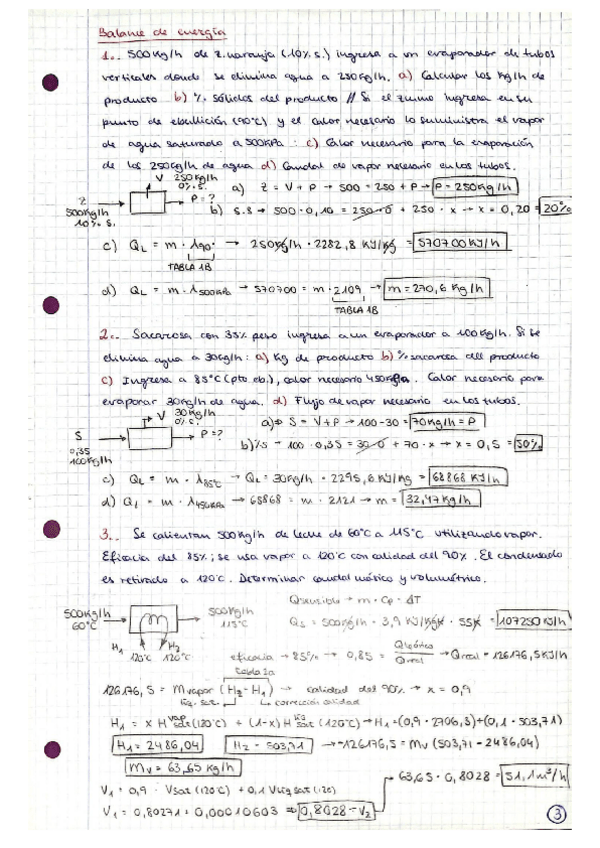 Balance de energía
1.. 500 Kg/h de z. naranja (10% s.) ingresa a un evaporador de tubos
verticales donde se elimina agua a 250Kg/h. a) Calcular los Kg/h de
producto b) % sólidos del producto // Si el zumo ingresa en su
punto de ebullición (90°C) y el calor necesario lo suministra el vapor
de agua saturado a 500KPa: c) Calor necesario para la evaporación
de los 250Kg/h de agua d) Caudal de vapor necesario en los tubos.
V 250Kg/h
0% s.
Z
500Kg/h
10% s.
P = ?
a) Z = V + P → 500 = 250 + P → P = 250Kg/h
b) S.S → 500 · 0,10 = 250·0 + 250 · x → x = 0,20 = 20%
c) QL = m · λ90° → 250Kg/h · 2282,8 KJ/Kg = 570700KJ/h
TABLA 1B
d) QL = m · λ500KPa → 570700 = m · 2109 → m = 270,6 Kg/h
TABLA 1B
2.. Sacarosa con 35% peso ingresa a un evaporador a 100Kg/h. Si se
elimina agua a 30Kg/h: a) Kg de producto b) % sacarosa del producto
c) Ingresa a 85°C (pto. eb.), calor necesario 450KPa. Calor necesario para
evaporar 30Kg/h de agua. d) Flujo de vapor necesario en los tubos.
V 30Kg/h
0% s.
S
0,35
100Kg/h
P = ?
a) → S = V + P → 100 - 30 = 70Kg/h = P
b) %s → 100 · 0,35 = 30·0 + 70 · x → x = 0,5 = 50%
c) QL = m · λ85°C → QL = 30Kg/h · 2295,6 KJ/Kg = 68868 KJ/h
d) QL = m · λ450KPa → 68868 = m · 2121 → m = 32,47Kg/h
3.. Se calientan 500Kg/h de leche de 60°C a 115°C utilizando vapor.
Eficacia del 85%; se usa vapor a 120°C con calidad del 90%. El condensado
es retirado a 120°C. Determinar caudal másico y volumétrico.
500Kg/h
60°C
500Kg/h
115°C
H1
120°C
H2
120°C
Qsensible → m · Cp · ΔT
QS = 500Kg/h · 3,9 KJ/KgK · 55K = 107250KJ/h
eficacia → 85% → 0,85 = Qteórico/Qreal → Qreal = 126176,5KJ/h
tabla 2a
126176,5 = Mvapor (H2 - H1) → calidad del 90% → x = 0,9
liq. sat. corrección calidad
H1 = x H vap sat (120°C) + (1-x) H liq sat (120°C) → H1 = (0,9 · 2706,3) + (0,1 · 503,71)
H1 = 2486,04 H2 = 503,71 → -126176,5 = Mv (503,71 - 2486,04)
Mv = 63,65 Kg/h
V1 = 0,9 · Vsat (120°C) + 0,1 Vliq sat (120)
V1 = 0,80271 + 0,00010603 ⇒ 0,8028 = V2
63,65 · 0,8028 = 51,1m³/h
3